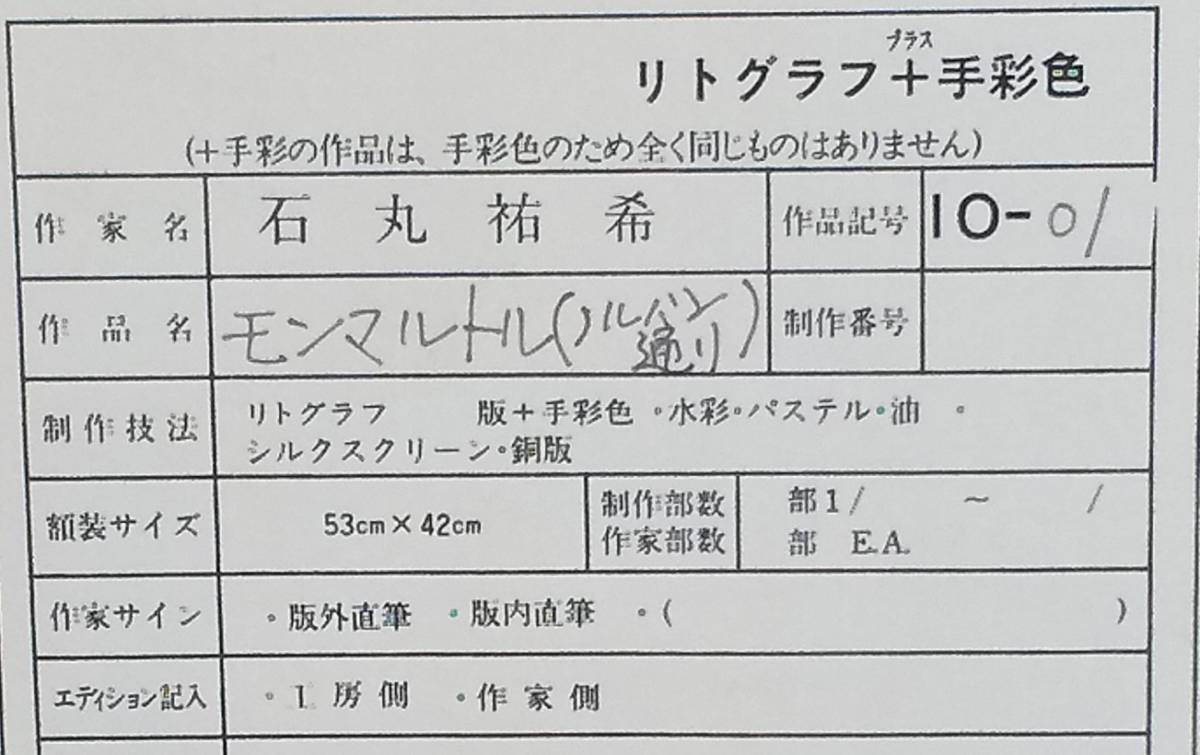 プラス
リトグラフ+手彩色
(+手彩の作品は、手彩色のため全く同じものはありません)
作家名 石丸祐希 作品記号 10-01
作品名 モンマルトル(ノルバン通り) 制作番号
制作技法 リトグラフ 版+手彩色・水彩・パステル・油・
シルクスクリーン・銅版
額装サイズ 53cm×42cm 制作部数 部1/ ~ /
作家部数 部 E.A.
作家サイン ・版外直筆 ・版内直筆 ・( )
エディション記入 ・工房側 ・作家側